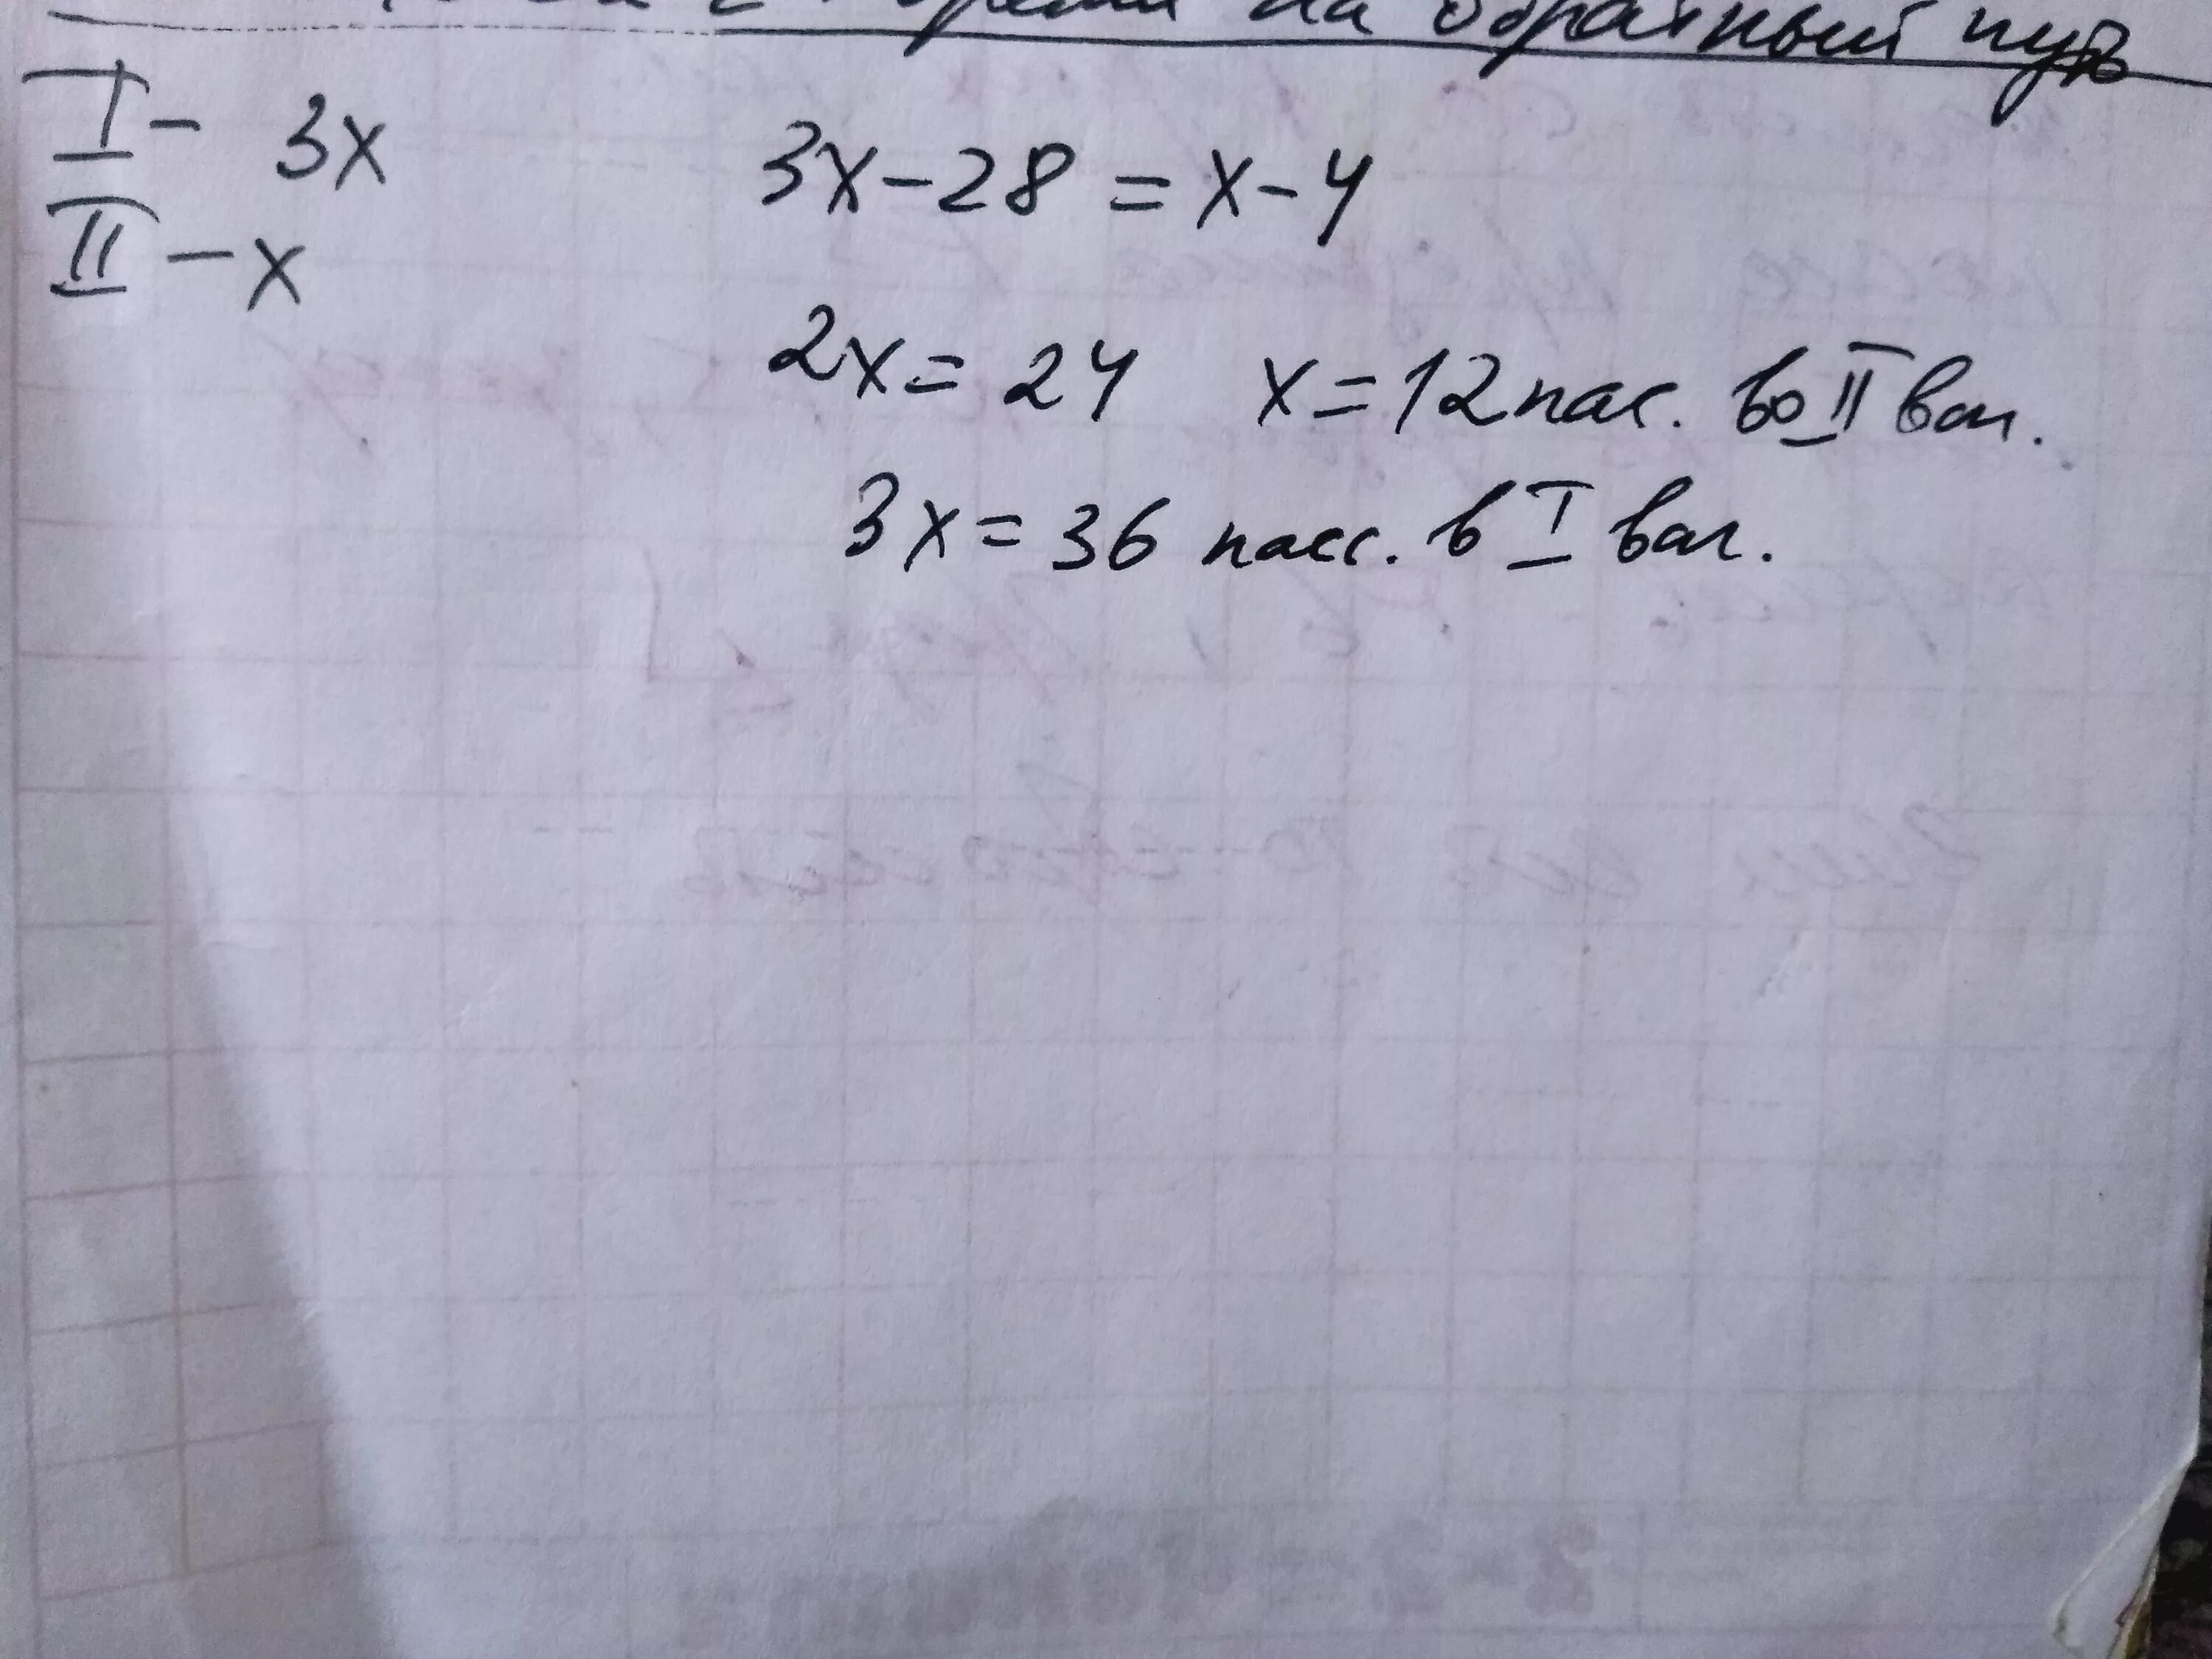 на обратный путь
I - 3x
3x - 28 = x - 4
II - x
2x = 24 x = 12 пас. во II ваг.
3x = 36 пасс. в I ваг.